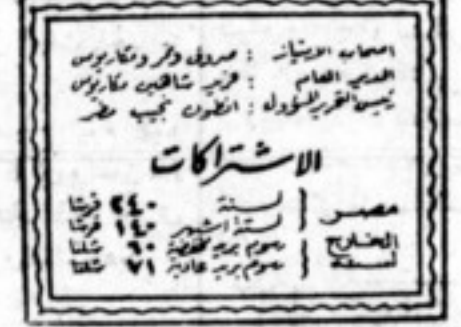 اصحاب الامتياز : صروف ونمر ومكاريوس
المدير العام : عزيز شاهين مكاريوس
رئيس التحرير المسؤول : انطون نجيب مطر
الاشتراكات
مصر { لسنة ٢٤٠ قرشا
لستة اشهر ١٤٠ قرشا
الخارج لسنة { رسوم بريد مخفضة ٦٠ شلنا
رسوم بريد عادية ٧١ شلنا